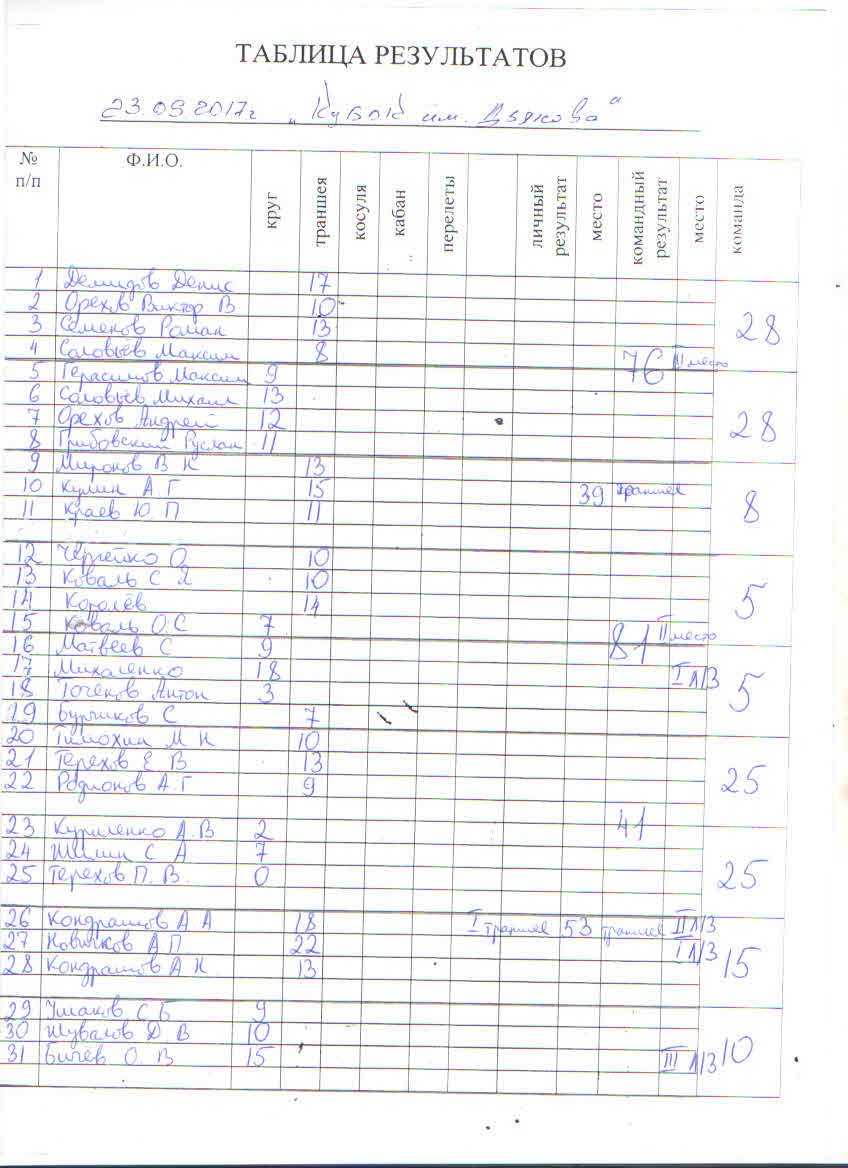 ТАБЛИЦА РЕЗУЛЬТАТОВ
23.09.2017г „Кубок им. Дьякова"
№ п/п Ф.И.О. круг траншея косуля кабан перелеты личный результат место командный результат место команда
1 Демидов Денис 17
2 Орехов Виктор В 10
3 Семенов Роман 13 28
4 Соловьёв Максим 8 76 III место
5 Герасимов Максим 9
6 Соловьев Михаил 13
7 Орехов Андрей 12 28
8 Грибовский Руслан 11
9 Миронов В Н 13
10 Кулин А Г 15 39 траншея
11 Краев Ю П 11 8
12 О 10
13 Коваль С Я 10
14 Королёв 14 5
15 Коваль О.С 7
16 Матвеев С 9 81 II место
17 Михаленко 18 I л/З
18 Точенов Антон 3 5
19 Бурчиков С 7
20 Тимохин М Н 10
21 Терехов Е В 13
22 Родионов А.Г 9 25
41
23 Куриленко А.В 2
24 С А 7
25 Терехов П. В. 0 25
26 Кондрашов А А 18 I траншея 53 траншея II л/З
27 Новиков А П 22 I л/З
28 Кондрашов А Н 13 15
29 Ушаков С Б 9
30 Шувалов Д В 10
31 Бичёв О. В 15 III л/З 10